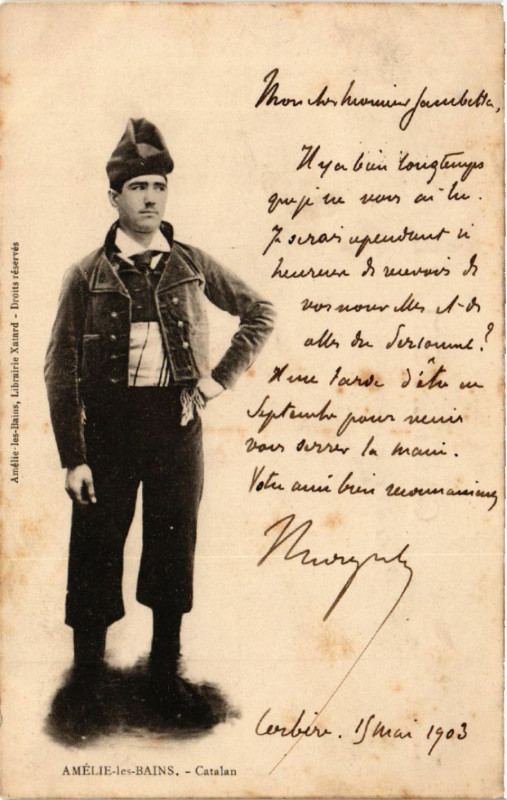 Mon cher monsieur Gambetta,
Il y a bien longtemps
que je ne vous ai lu.
Je serais cependant si
heureux de recevoir de
vos nouvelles et de
celles du Personnel?
Il me tarde d'être en
Septembre pour venir
vous serrer la main.
Votre ami bien reconnaissant
Cerbère. 15 mai 1903
Amélie-les-Bains, Librairie Xatard - Droits réservés
AMÉLIE-les-BAINS. - Catalan